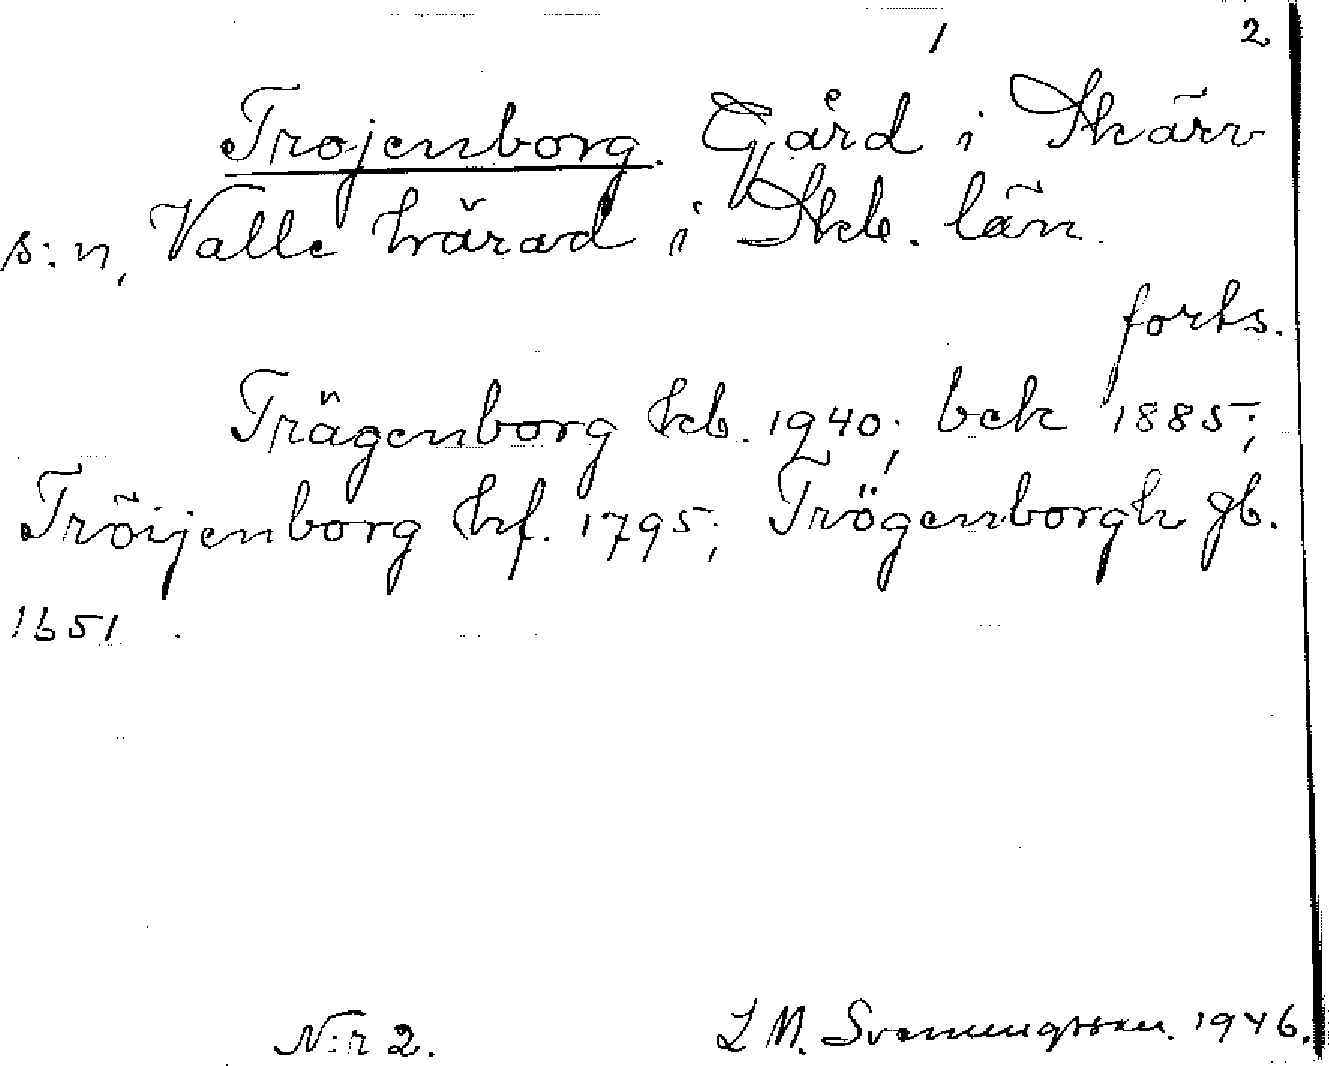 1 2
Trojenborg. Gård i Skärv
s:n, Valle härad i Skb. län.
forts.
Trägenborg kb. 1940; bek 1885;
Tröijenborg hf. 1795; Trögenborgh gb.
1651.
N:r 2. L M. Svenungsson. 1946.